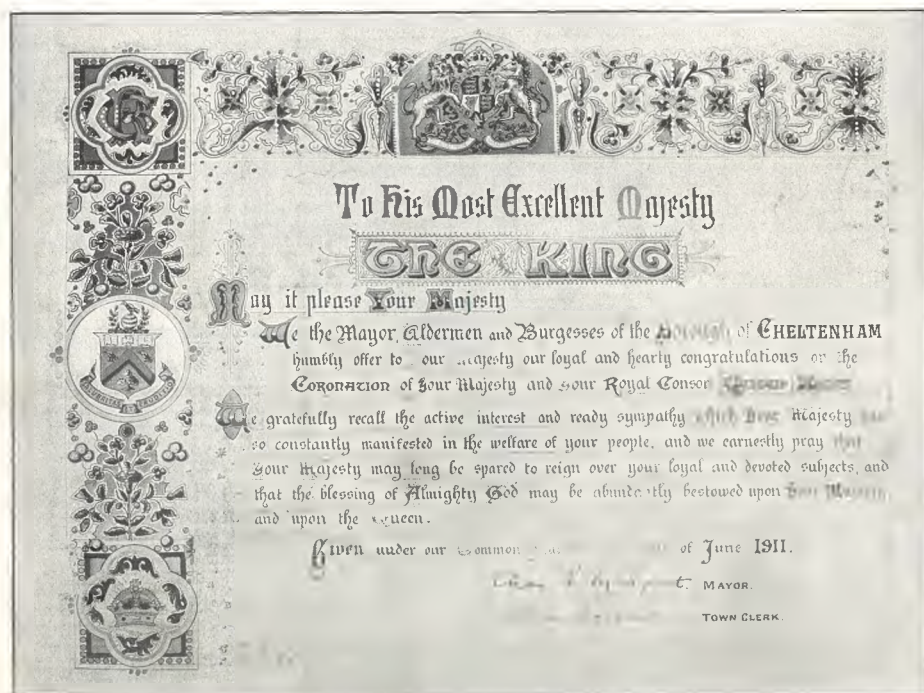 To His Most Excellent Majesty
THE KING
May it please Your Majesty
We the Mayor, Aldermen and Burgesses of the Borough of CHELTENHAM
humbly offer to our Majesty our loyal and hearty congratulations on the
CORONATION of Your Majesty and Your Royal Consort
We gratefully recall the active interest and ready sympathy which Your Majesty
so constantly manifested in the welfare of your people, and we earnestly pray that
Your Majesty may long be spared to reign over your loyal and devoted subjects, and
that the blessing of Almighty God may be abundantly bestowed upon Your Majesty
and upon the Queen.
Given under our Common of June 1911.
MAYOR.
TOWN CLERK.